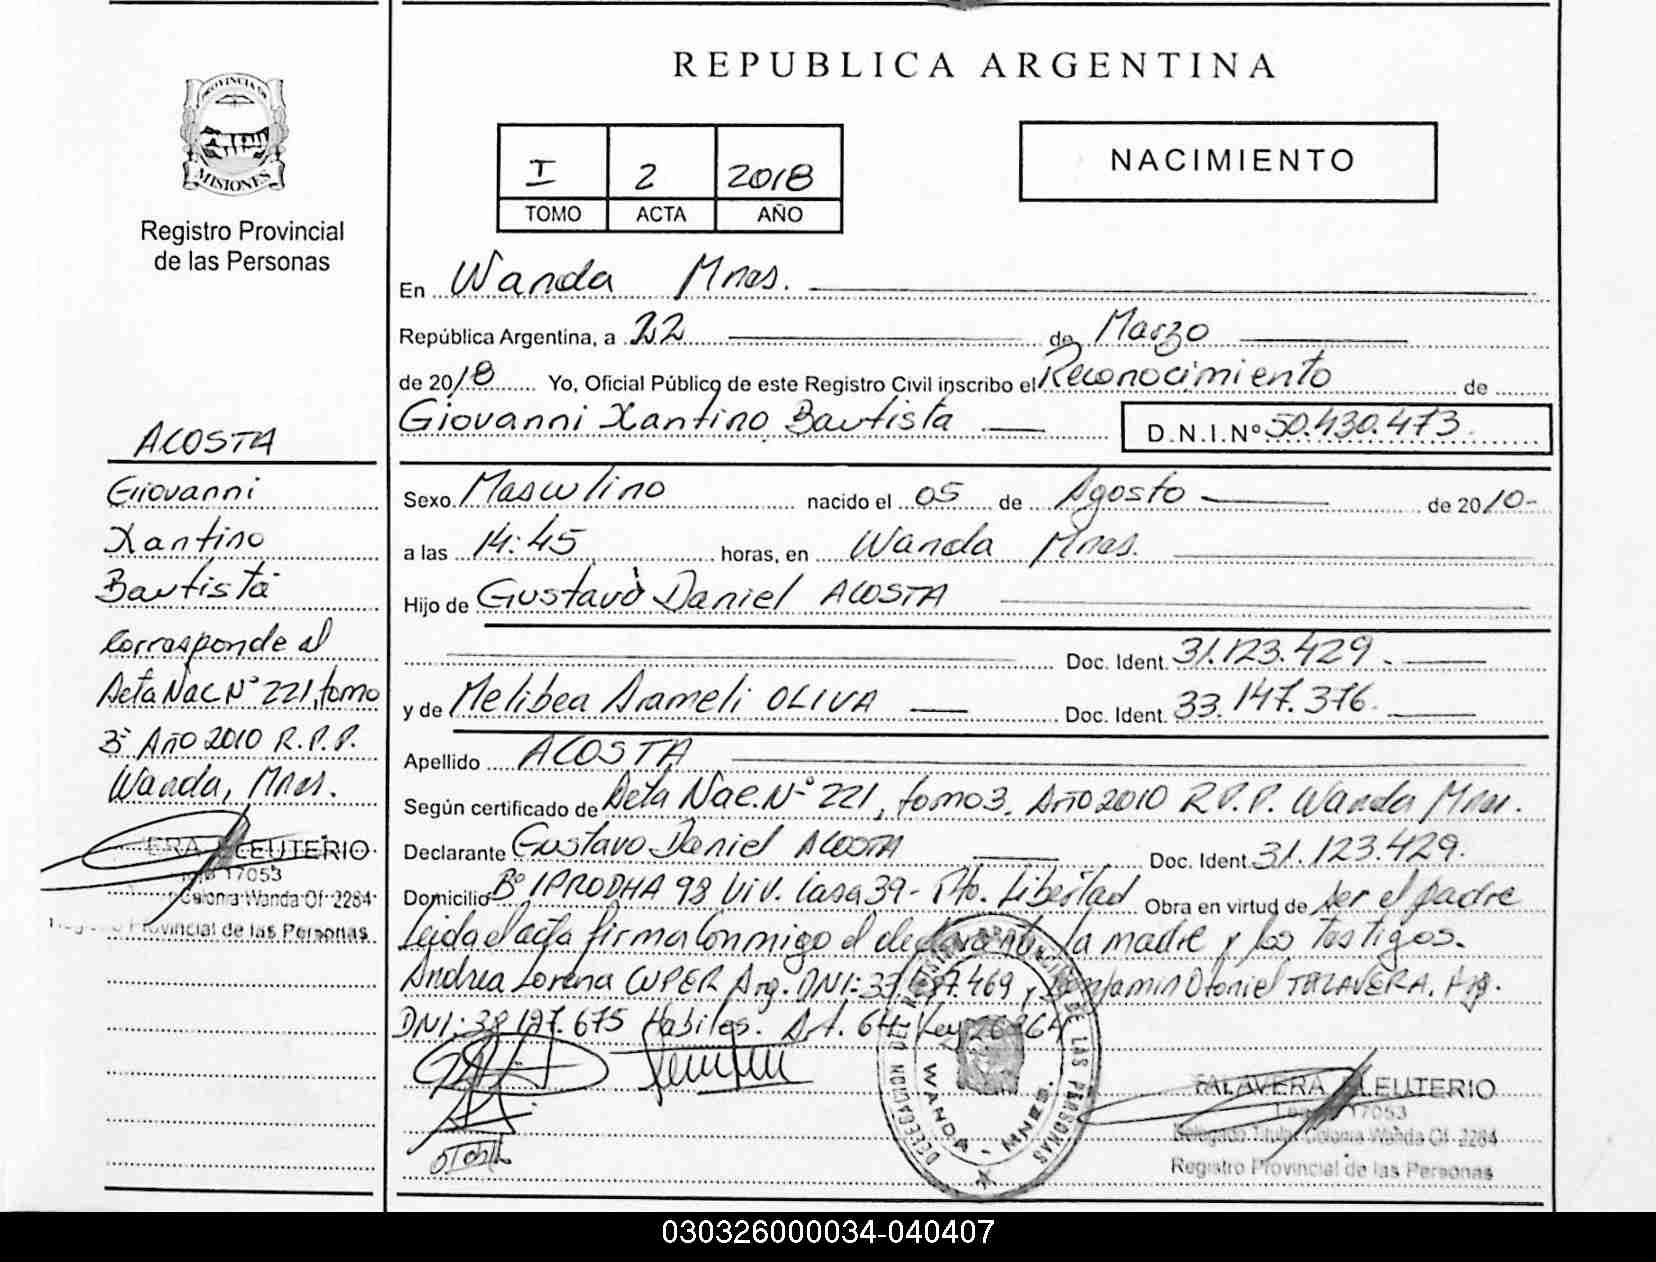 REPUBLICA ARGENTINA
PROVINCIA DE
MISIONES
Registro Provincial
de las Personas
I 2 2018
TOMO ACTA AÑO
NACIMIENTO
En Wanda Mnes.
República Argentina, a 22 de Marzo
de 2018 Yo, Oficial Público de este Registro Civil inscribo el Reconocimiento de
Giovanni Xantino Bautista D.N.I.Nº 50.430.473
Sexo Masculino nacido el 05 de Agosto de 2010-
a las 14:45 horas, en Wanda Mnes.
Hijo de Gustavo Daniel ACOSTA
Doc. Ident. 31.123.429.
y de Melibea Arameli OLIVA Doc. Ident. 33.147.376.
Apellido ACOSTA
Según certificado de Acta Nac. Nº 221, tomo 3, Año 2010 R.P.P. Wanda Mnes.
Declarante Gustavo Daniel ACOSTA Doc. Ident. 31.123.429.
Domicilio Bº IPRODHA 98 Viv. Casa 39- Pto. Libertad Obra en virtud de ser el padre
Leida el acta firma Conmigo el declarante, la madre y los testigos.
Andrea Lorena CUPER Arg. DNI: 469 y Benjamin Otoniel TALAVERA. Arg.
DNI: 38.197.675 Habiles. Art. 64
ACOSTA
Giovanni
Xantino
Bautista
Corresponde al
Acta Nac Nº 221, tomo
3º Año 2010 R.P.P.
Wanda, Mnes.
ELEUTERIO
17053
Colonia Wanda Of. 2284
Provincial de las Personas
DELEGACION DEL REGISTRO PROVINCIAL DE LAS PERSONAS
WANDA - MNES.
TALAVERA ELEUTERIO
17053
Delegado Titular Colonia Wanda Of. 2284
Registro Provincial de las Personas
030326000034-040407